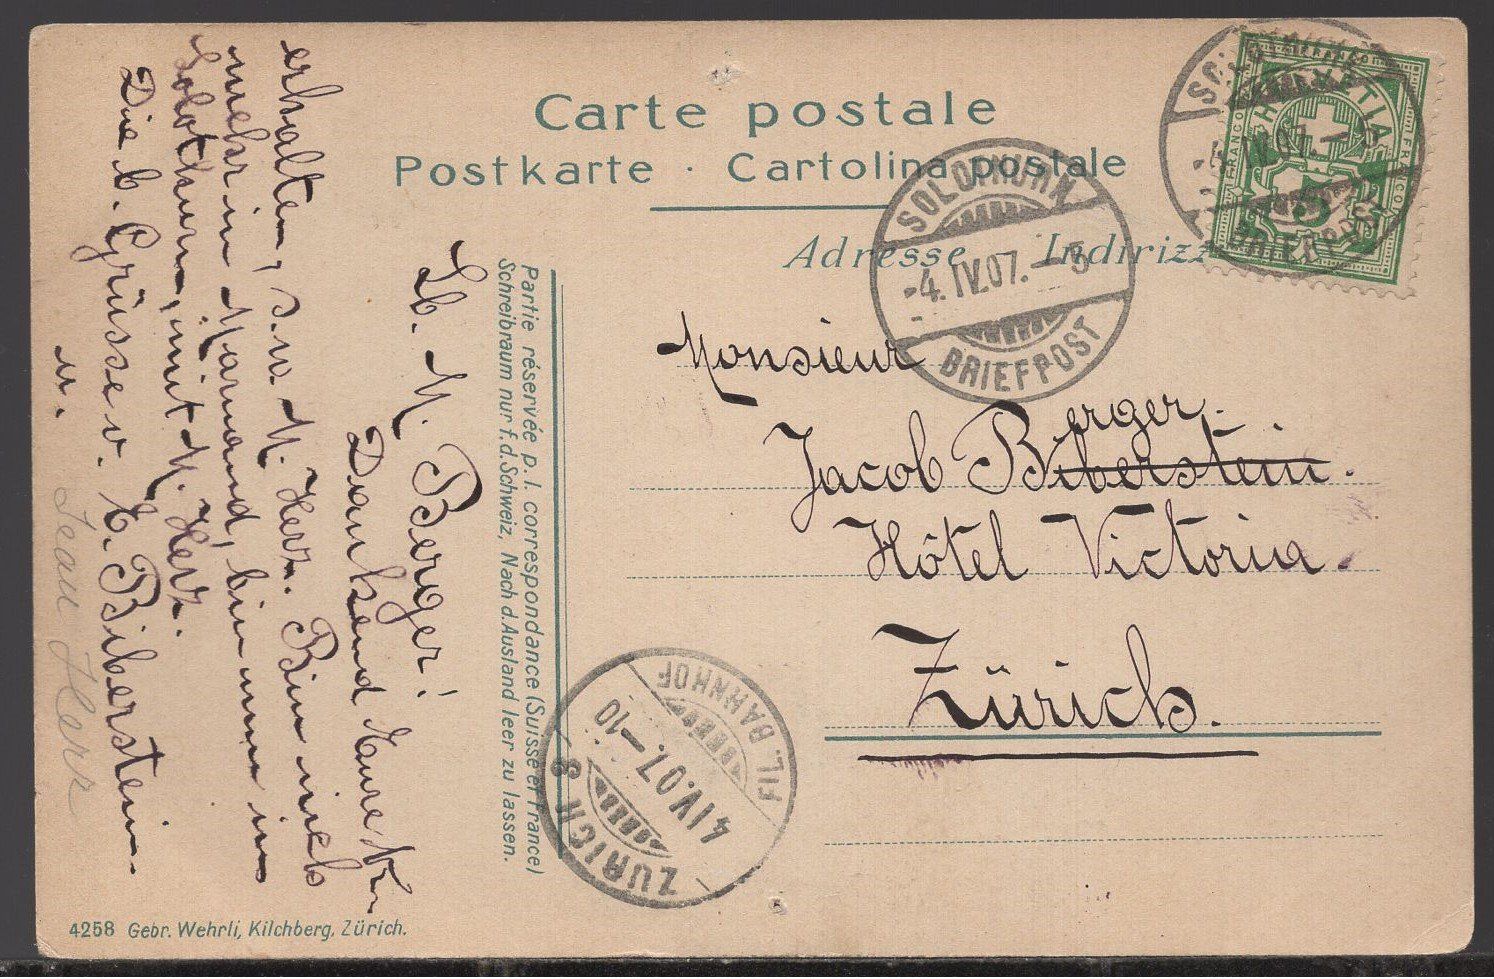 Carte postale
Postkarte · Cartolina postale
Adresse Indirizz
HELVETIA
FRANCO FRANCO
5
SOLOTHURN
-4.IV.07.-5
BRIEFPOST
BRIEFPOST
Monsieur
Jacob Berger.
Biberstein.
Hôtel Victoria.
Zürich.
ZÜRICH 8
4.IV.07.-10
FIL. BAHNHOF
Partie réservée p. l. correspondance (Suisse et France)
Schreibraum nur f. d. Schweiz, Nach d. Ausland leer zu lassen.
Lb. M. Berger!
Dankend Eure
erhalten, s.w M. Herz. Bin nicht
mehr in Marnand, bin nun in
Solothurn, mit M. Herz.
Die b. Grüsse v. E. Biberstein.
u. Jean Herz
4258 Gebr. Wehrli, Kilchberg, Zürich.